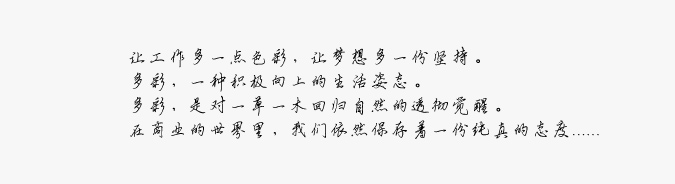 让工作多一点色彩，让梦想多一份坚持。
多彩，一种积极向上的生活姿态。
多彩，是对一草一木回归自然的透彻觉醒。
在商业的世界里，我们依然保存着一份纯真的态度……